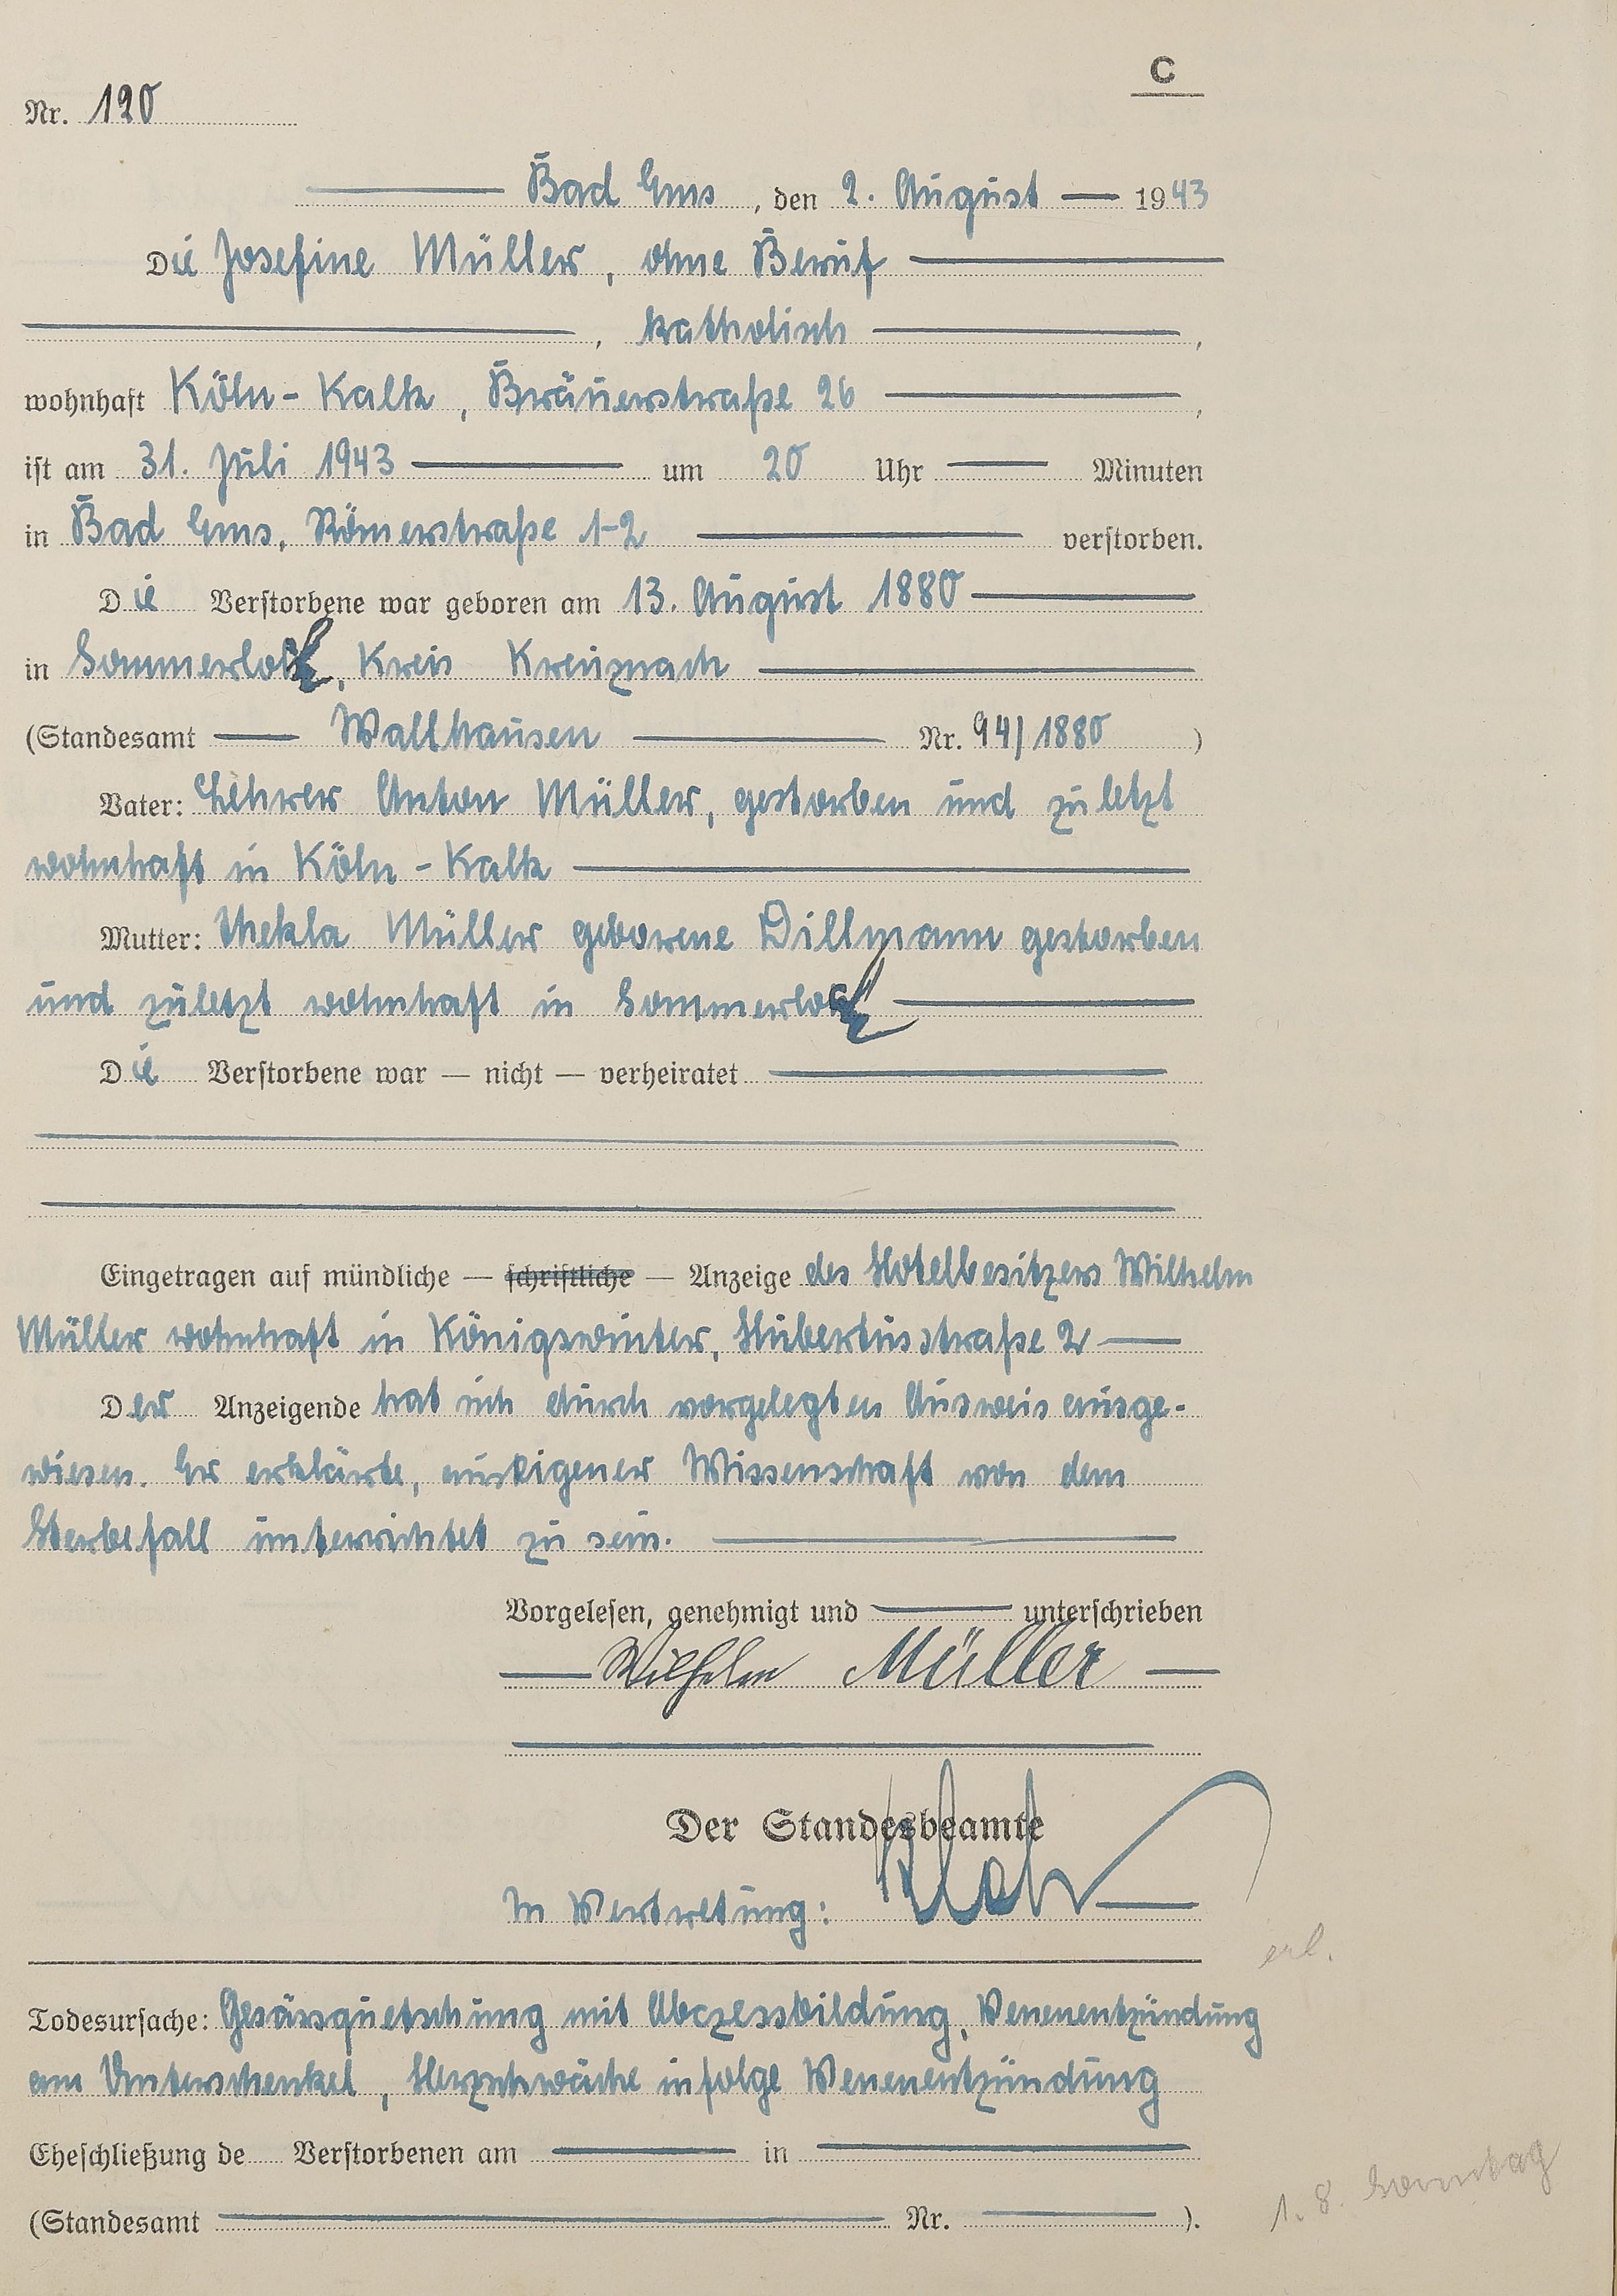 C
Nr. 120
Bad Ems, den 2. August 1943
Die Josefine Müller, ohne Beruf
, katholisch ,
wohnhaft Köln-Kalk, Bräuerstraße 26 ,
ist am 31. Juli 1943 um 20 Uhr Minuten
in Bad Ems, Römerstraße 1-2 verstorben.
Die Verstorbene war geboren am 13. August 1880
in Sommerloch, Kreis Kreuznach
(Standesamt Wallhausen Nr. 94/1880 )
Vater: Lehrer Anton Müller, gestorben und zuletzt
wohnhaft in Köln-Kalk
Mutter: Thekla Müller geborene Dillmann gestorben
und zuletzt wohnhaft in Sommerloch
Die Verstorbene war — nicht — verheiratet
Eingetragen auf mündliche — schriftliche — Anzeige des Hotelbesitzers Wilhelm
Müller wohnhaft in Königswinter, Hubertusstraße 2
Der Anzeigende hat sich durch vorgelegten Ausweis ausge-
wiesen. Er erklärte, aus eigener Wissenschaft von dem
Sterbefall unterrichtet zu sein.
Vorgelesen, genehmigt und unterschrieben
Wilhelm Müller
Der Standesbeamte
In Vertretung:
erl.
Todesursache: Gesässquetschung mit Abczessbildung, Venenentzündung
am Unterschenkel, Herzschwäche infolge Venenentzündung
Eheschließung de Verstorbenen am in
(Standesamt Nr. ).
1. 8. Sonntag